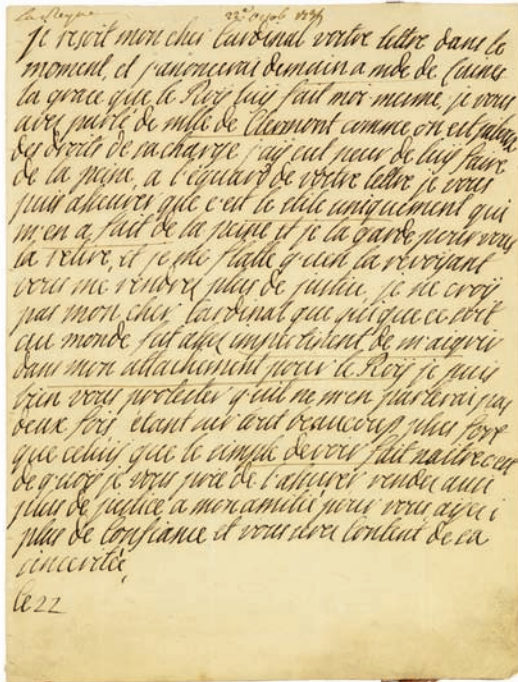 La Reyne 22e
je reçoit mon cher Cardinal vostre lettre dans le
moment, et j'anoncerai demain a mde de Luines
la grace que le Roy luis fait moi mesme, je vous
aves parlé de mlle de Clermont comme on est jalouse
des droits de sa charge j'ais eut peur de luis faire
de la peine, a l'eguard de vostre lettre je vous
puis asseurer que c'est le stile uniquement qui
m'en a fait de la peine et je la garde pour vous
la relire, et je me flatte qu'en la revoyant
vous me rendres plus de justice, je ne croÿ
pas mon cher Cardinal que qui que ce soit
au monde soit asses impertinent de m'aigrir
dans mon attachement pour le Roÿ je puis
bien vous protester qu'il ne m'en parlerai pas
deux fois étant sur tout beaucoup plus fort
que celuis que le simple devoir fait naitre c'est
de quoy je vous prie de l'assurer rendes aussi
plus de justice a mon amitié pour vous ayes i
plus de Confiance et vous seres Content de sa
sincerité,
le 22